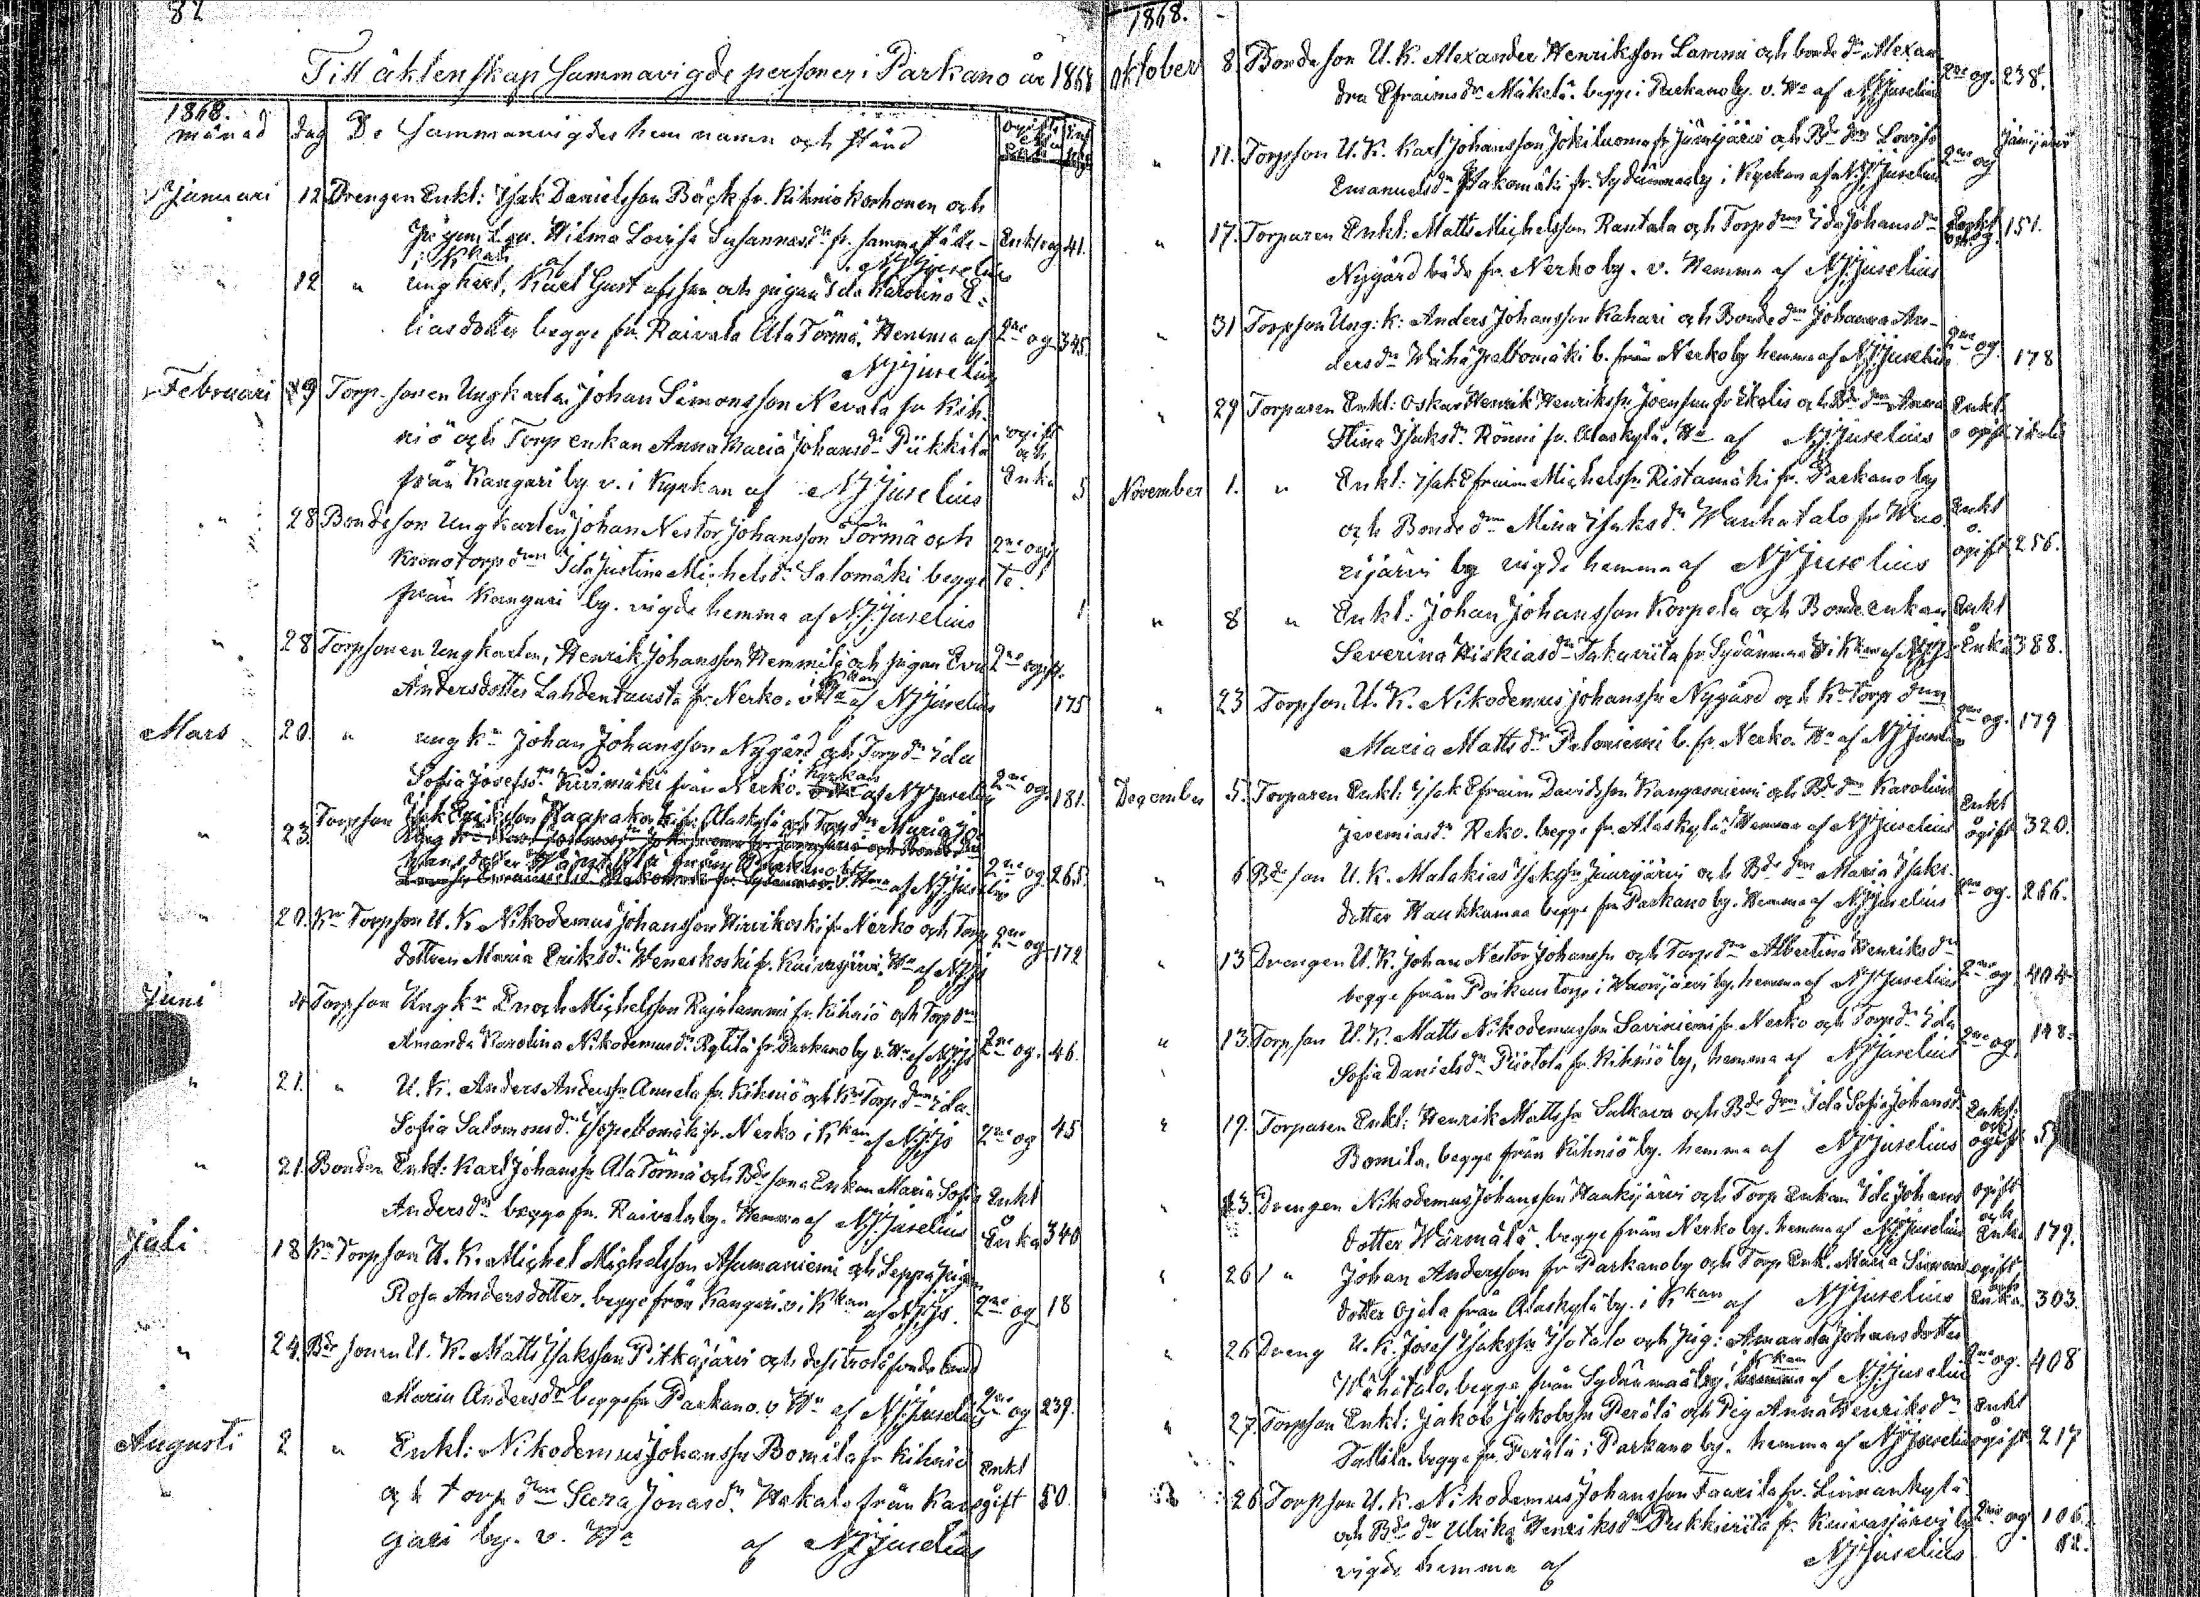 82
Till äktenskap Sammavigde personer i Parkano år 1868
1868.
månad dag De Sammanvigdes hem namn och stånd
Januari 12 Drengen Enkl: Isak Danielsson Bäck fr. Kihniö Korhonen och
Pigan Wilma Lovisa Susannasdr fr. samma Enkl og 41.
i Kkan af NJJuselius
" 12 " ungkarl, Karl Gustafsson och pigan Ida Karolina E-
liasdotter begge fr. Raivala Ala Törmä. Hemma af 2ne og 345.
NJJuselius
Februari 9 Torp-sonen Ungkarlen Johan Simonsson Nevala fr Kih-
niö och Torp enkan Anna Maria Johansdr Piikkilä ogift och
från Kangari by v. i Kyrkan af NJJuselius Enka 5
" 28 Bondeson Ungkarlen Johan Nestor Johansson Törmä och 2ne ogif
Kronotorp dren Ida Justina Michelsdr Salomäki begge te.
från Kangari by. vigde hemma af N.J.Juselius 1
" 28 Torpsonen Ungkarlen, Henrik Johansson Hemmilä och pigan Eva 2ne ogift.
i Kkan
Andersdotter Lahdentausta fr. Nerko. af NJJuselius 175
Mars 20. " ungkn Johan Johansson Nygård och Torpdr Ida
Kyrkan
Sofia Josefsdr Kivimäki från Nerko. af NJJuselius 2ne og. 181.
Torpson Isak Eriksson Raapakoski fr. Alaskylä och Torpdr Maria Jo-
" 23.
hansdotter från Parkano by
v. Hma af NJJuselius 2ne og. 265.
" 20. Kr Torpson U. K. Nikodemus Johansson Hirvikoski fr Nerko och Torp
dottren Maria Eriksdr Weneskoski fr. Kuivasjärvi. Ha af NJJs 2ne og 172
Juni 4 Torpson Ungkn Enoch Michelsson Rajalammi fr. Kihniö och Torpdren
Amanda Karolina Nikodemusdr Kytilä fr Parkano by v. Ha af NJJs 2ne og. 46.
" 21. " U. K. Anders Anderssn Annala fr. Kihniö och Kr Torpdren Ida
Sofia Salomonsdr Isopeltomäki fr. Nerko i Kkan af NJJs 2ne og 45
" 21. Bonden Enkl: Karl Johanssn Ala Törmä och Bde sons Enkan Maria Sofia Enkl
Andersdr begge fr. Raivala by. Hemma af NJJuselius o Enka 340
Juli 18 Kr Torpson U. K. Michel Michelsson Asumaniemi och Seppä Pigan
Rosa Andersdotter, begge från Kangari. v. i Kkan af NJJs. 2ne og 18
" 24. Bde sonen U. K. Matts Isaksson Pitkäjärvi och
Maria Andersdr begge fr Parkano v Ha af NJJuselius 2ne og 239.
Augusti 2 " Enkl: Nikodemus Johanssn Bomila fr Kihniö Enkl
och torp dren Sara Jonasdr Hakala från Kan- ogift 50.
gari by. v. Ha af NJJuselius
1868.
Oktober 8 Bondeson U. K. Alexander Henriksson Lammi och bonde dr Alexan
dra Efraimsdr Mäkelä. begge i Parkano by. v. Ha af NJJuselius 2ne og. 238.
" 11. Torpson U. K. Karl Johansson Jokiluoma fr Jämijärvi och Bde dren Lovisa Jämijärvi
Emanuelsdr Jakomäki fr. Sydänmaa by i Kyrkan af NJJuselius 2ne og
" 17. Torparen Enkl: Matts Michelsson Rautala och Torp dren Ida Johansdr Enkl 151.
Nygård båda fr. Nerko by. v. Hemma af NJJuselius
" 31 Torpson Ung: K: Anders Johansson Kahari och Bonde dren Johanna An-
dersdr Wähäpeltomäki b. från Nerko by hemma af NJJuselius 2ne og. 178
" 29 Torparen Enkl: Oskar Henrik Henrikssn Joensuu fr Ikalis och Bde dren Anna Enkl
Stina Isaksdr Rönni fr. Alaskylä. Ha af NJJuselius o ogift Ikalis
November 1. " Enkl: Isak Efraim Michelssn Ristamäki fr. Parkano by
och Bonde dren Mina Isaksdr Wanhatalo fr Wuo- Enkl
rijärvi by vigde hemma af NJJuselius ogift 256.
" 8 " Enkl: Johan Johansson Korpela och Bonde enkan Enkl
Severina Hiskiasdr Takaviita fr Sydänmaa i Kkan af NJJs o Enka 388.
" 23 Torpson U. K. Nikodemus Johanssn Nygård och Kr Torp dren
Maria Matts dr Paloniemi b. fr. Nerko. Ha af NJJuselius 2ne og. 179
December 5. Torparen Enkl: Isak Efraim Davidsson Kangasniemi och Bde dren Karolina Enkl
Jeremiasdr Reko. begge fr. Alaskylä. Hemma af NJJuselius ogift 320.
" 6 Bde son U. K. Malakias Isakssn Jäärijärvi och Bde dren Maria Isaks-
dotter Haukkamaa begge fr Parkano by. Hemma af NJJuselius 2ne og. 266.
" 13 Drengen U. K. Johan Nestor Johanssn och Torpdren Albertina Henriksdr
begge från Poikens torp i Wuorijärvi by, hemma af NJJuselius 2ne og 404
" 13. Torpson U. K. Matts Nikodemusson Saviniemi fr. Nerko och Torpdr Ida
Sofia Danielsdr Piirtola fr. Kihniö by, hemma af NJJuselius 2ne og. 148.
" 19. Torparen Enkl: Henrik Mattssn Salkava och Bde dren Ida Sofia Johansdr Enkl: och
Bomila, begge från Kihniö by. hemma af NJJuselius ogift 57
" 13. Drengen Nikodemus Johansson Haukijärvi och Torp Enkan Ida Johans ogift och
dotter Wärmälä. begge från Nerko by. hemma af NJJuselius Enka 179.
" 26 " Johan Andersson fr Parkano by och Torp Enk. Maria Simons ogift och
dotter Ojala från Alaskylä by. i Kkan af NJJuselius Enka. 303.
" 26 Dreng U. K. Josef Isakssn Isotalo och Pig: Amanda Johansdotter
Kkan
Wähätalo, begge från Sydänmaa by, hemma af NJJuselius 2ne og. 408
" 27. Torpson Enkl: Jakob Jakobssn Perälä och Pig Anna Henriksdr Enkl
Tallila. begge fr. Perälä i Parkano by. hemma af NJJuselius ogift 217
26 Torpson U. K. Nikodemus Johansson Faarila fr. Linnankylä
och Bde dr Ulrika Henriksdr Pukkivitä fr. Kuivasjärvi by 2ne og 106.
vigde hemma af NJJuselius 82.